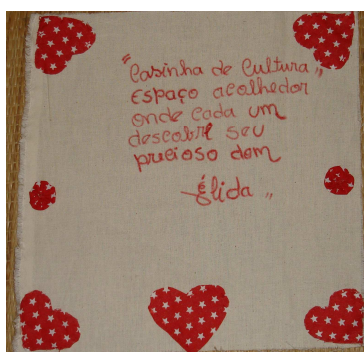 "Casinha de Cultura,,
espaço acolhedor
onde cada um
descobre seu
precioso dom
Élida,,